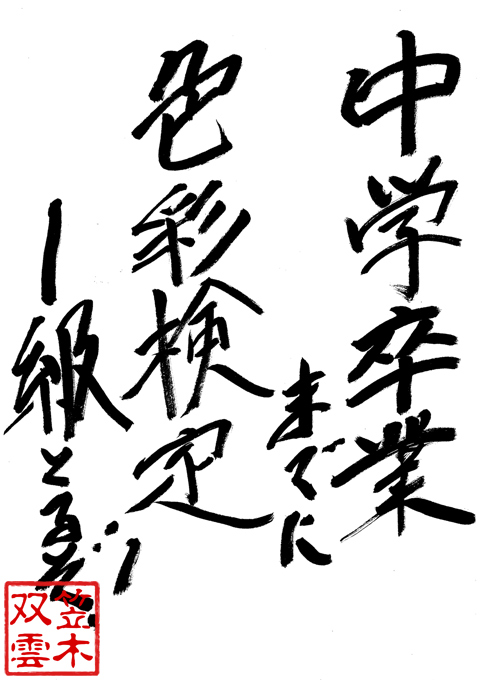 中学卒業
までに
色彩検定
1級とるぞ
立木
双雲